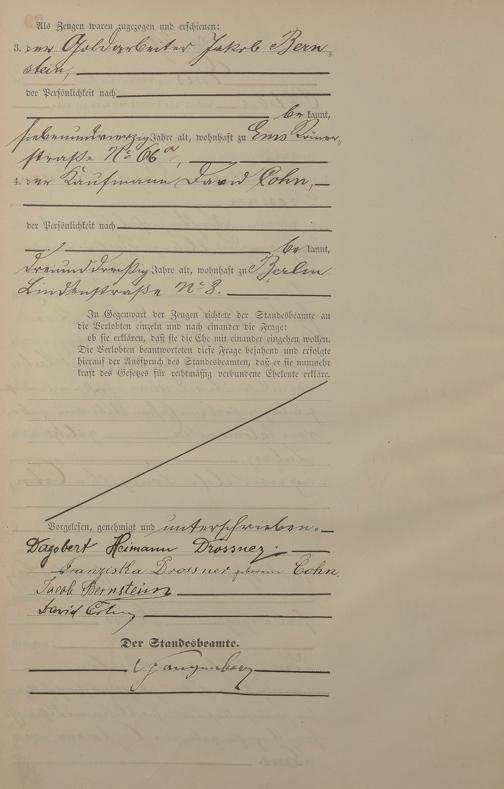 Als Zeugen waren zugezogen und erschienen:
3. der Goldarbeiter Jakob Bern-
stein,
der Persönlichkeit nach
be kannt,
siebenundvierzig Jahre alt, wohnhaft zu Ems Römer-
straße No 66a,
4. der Kaufmann David Cohn,
der Persönlichkeit nach
be kannt,
dreiunddreißig Jahre alt, wohnhaft zu Berlin
Lindenstraße No 8.
In Gegenwart der Zeugen richtete der Standesbeamte an
die Verlobten einzeln und nach einander die Frage:
ob sie erklären, daß sie die Ehe mit einander eingehen wollen.
Die Verlobten beantworteten diese Frage bejahend und erfolgte
hierauf der Ausspruch des Standesbeamten, daß er sie nunmehr
kraft des Gesetzes für rechtmäßig verbundene Eheleute erkläre.
Vorgelesen, genehmigt und unterschrieben.
Dagobert Heimann Drossner
Franziska Drossner geborene Cohn.
Jacob Bernstein
David Cohn
Der Standesbeamte.